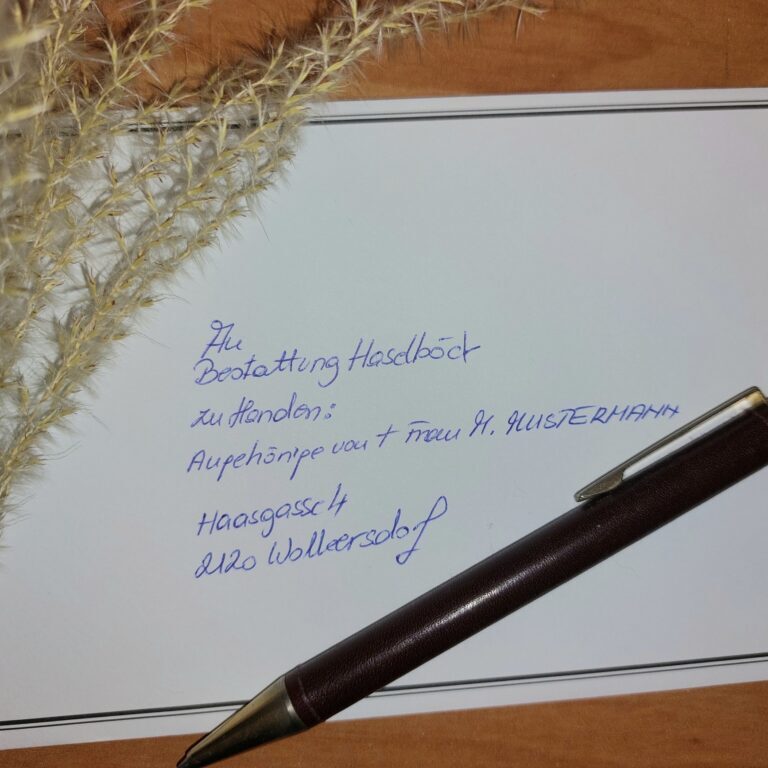 An
Bestattung Haselböck
zu Handen:
Angehörige von † Frau M. MUSTERMANN
Haasgasse 4
2120 Wolkersdorf